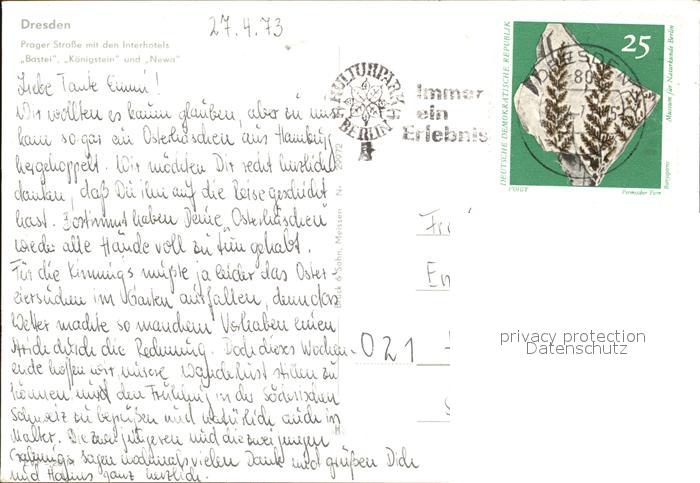 Dresden
Prager Straße mit den Interhotels
„Bastei", „Königstein" und „Newa"
27.4.73
Liebe Tante Emmi!
Wir wollten es kaum glauben, aber zu uns
kam sogar ein Osterhäschen aus Hamburg
hergehoppelt. Wir möchten Dir recht herzlich
danken, daß Du ihn auf die Reise geschickt
hast. Bestimmt haben Deine „Osterhäschen"
wieder alle Hände voll zu tun gehabt.
Für die mußte ja leider das Oster-
eiersuchen im Garten ausfallen, denn das
Wetter machte so manchem Vorhaben einen
Strich durch die Rechnung. Doch dieses Wochen-
ende hoffen wir, unsere Wanderlust stillen zu
können und den Frühling in der Sächsischen
Schweiz zu begrüßen und natürlich auch in
Malter. Die zwei jüngeren und die zwei jungen
sagen nochmals vielen Dank und grüßen Dich
und Hannes ganz herzlich.
Brück & Sohn, Meissen Nr. 29972
KULTURPARK
BERLIN
Immer
ein
Erlebnis
DRESDEN
80
DEUTSCHE DEMOKRATISCHE REPUBLIK
25
Museum für Naturkunde Berlin
VOIGT
Permischer Farn
Bottrópens
Fr
Em
021
privacy protection
Datenschutz